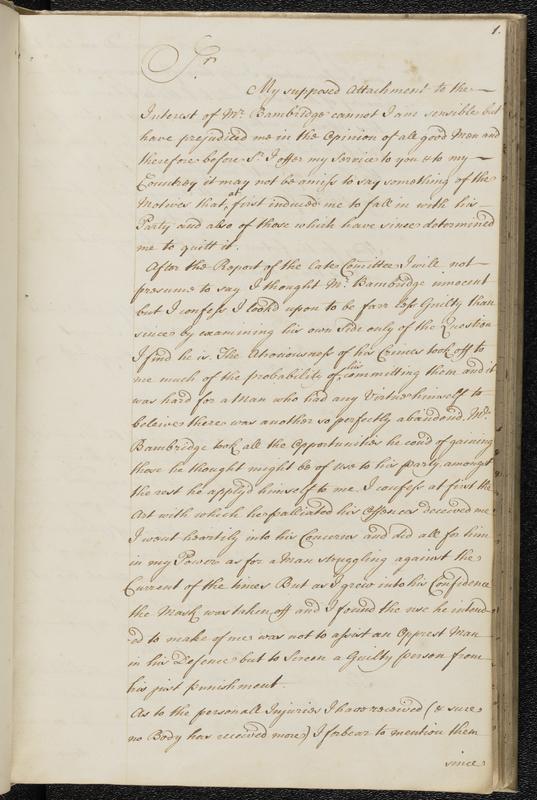 1.
Sr
My supposed Attachment to the
Interest of Mr. Bambridge cannot I am sensible but
have prejudiced me in the Opinion of all good Men and
therefore before Sr. I offer my Service to you & to my
Countrey it may not be amiss to say something of the
Motives that at first induced me to fall in with his
Party and also of those which have since determined
me to quitt it.
After the Report of the late Comittee I will not
presume to say I thought Mr. Bambridge innocent
but I confess I look'd upon to be farr less Guilty than
since by examining his own Side only of the Question
I find he is. The Atrociousness of his Crimes took off to
me much of the probability of his committing them and it
was hard for a Man who had any Virtue himself to
beleive there was another so perfectly abandond. Mr.
Bambridge took all the Opportunities he coud of gaining
those he thought might be of use to his party amongst
the rest he apply'd himself to me. I confess at first the
Art with which he palliated his Offences deceived me
I went heartily into his Concerns and did all for him
in my Power as for a Man struggling against the
Current of the times But as I grew into his Confidence
the Mask was taken off and I found the use he intend-
ed to make of me was not to assist an Opprest Man
in his Defence but to Screen a Guilty person from
his just punishment.
As to the personall Injuries I have received (& sure
no Body has received more) I forbear to mention them
since